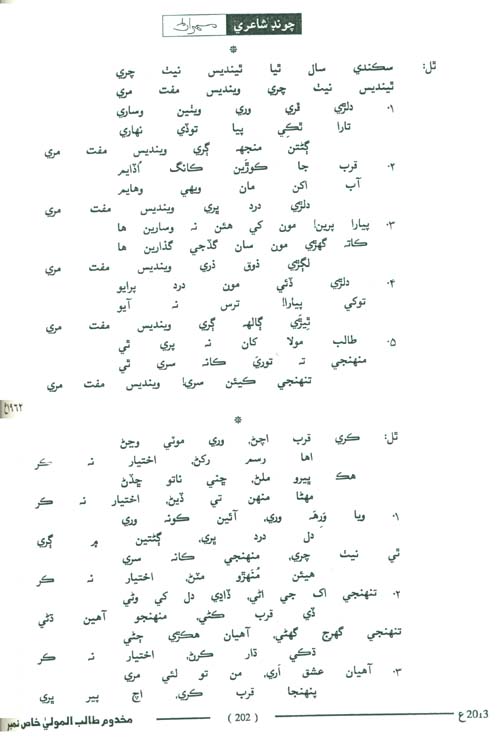 چونڊ شاعري
ٿل: سڪندي سال ٿيا ٿينديس نيٺ چري
ٿينديس نيٺ چري وينديس مفت مري
۱۔ دلڙي ڦري وري ويٺين وساري
تارا ٿڪي پيا توڏي نهاري
ڳڻتن منجهہ ڳري وينديس مفت مري
۲۔ قرب جا ڪوڙين ڪانگ اُڏايم
آب اکن مان ويهي وهايم
دلڙي درد ڀري وينديس مفت مري
۳۔ پيارا پرين! مون کي هئن نہ وسارين ها
ڪاتہ گهڙي مون سان گڏجي گذارين ها
لڳڙي ذوق ذري وينديس مفت مري
۴۔ دلڙي ڏئي مون درد پرايو
توکي پيارا! ترس نہ آيو
ٿيڙي ڳالهہ ڳري وينديس مفت مري
۵۔ طالب مولا کان نہ پري ٿي
منهنجي تہ توريَ ڪانہ سري ٿي
تنهنجي ڪيئن سري! وينديس مفت مري
۱۹۶۲ع
ٿل: ڪري قرب اچڻ، وري موٽي وڃڻ
اها رسم رکڻ، اختيار نہ ڪر
هڪ ڀيرو ملڻ، ڇني ناتو ڇڏڻ
مهڻا منهن تي ڏيڻ، اختيار نہ ڪر
۱۔ ويا وَرهہ وري، آئين ڪونہ وري
دل درد ڀري، ڳڻتين ۾ ڳري
ٿي نيٺ چري، منهنجي ڪانہ سري
هيئن مُنهڙو مٽڻ، اختيار نہ ڪر
۲۔ تنهنجي اک جي اڻي، ڏاڍي دل کي وڻي
ڏي قرب ڪڻي، منهنجو آهين ڌڻي
تنهنجي گهرج گهڻي، آهيان هڪڙي ڄڻي
ڌڪي ڌار ڪرڻ، اختيار نہ ڪر
۳۔ آهيان عشق اَڙي، من تو لئي مري
پنهنجا قرب ڪري، اچ پير ڀري
مخدوم طالب الموليٰ خاص نمبر
( 202 )
2013ع